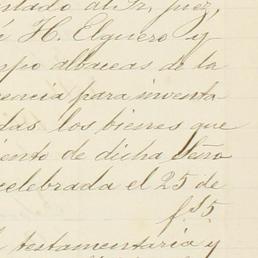 ntado al Sr, juez,
H. Elguero y
rpo albaceas de la
encia para inventa
das los bienes que
iento de dicha Seño
celebrada el 25 de
f. 55.
testamentaria y